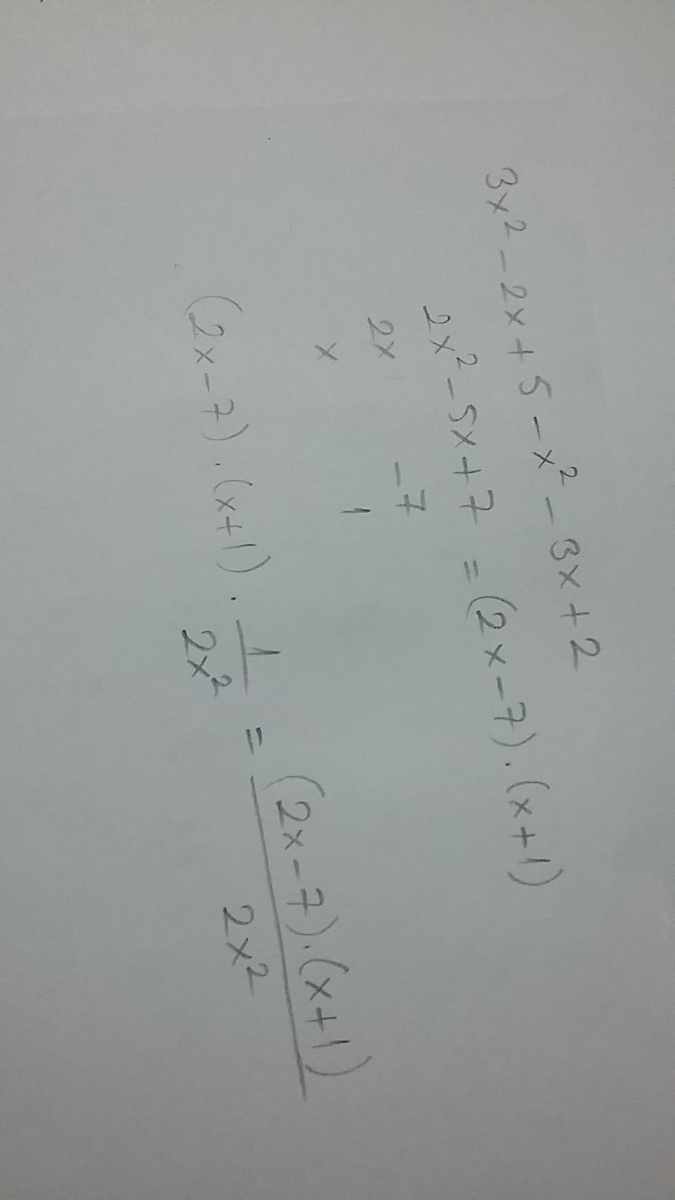 3x² - 2x + 5 - x² - 3x + 2
2x² - 5x + 7 = (2x - 7) · (x + 1)
2x -7
x 1
(2x - 7) · (x + 1) · 1/2x² = (2x - 7) · (x + 1)/2x²